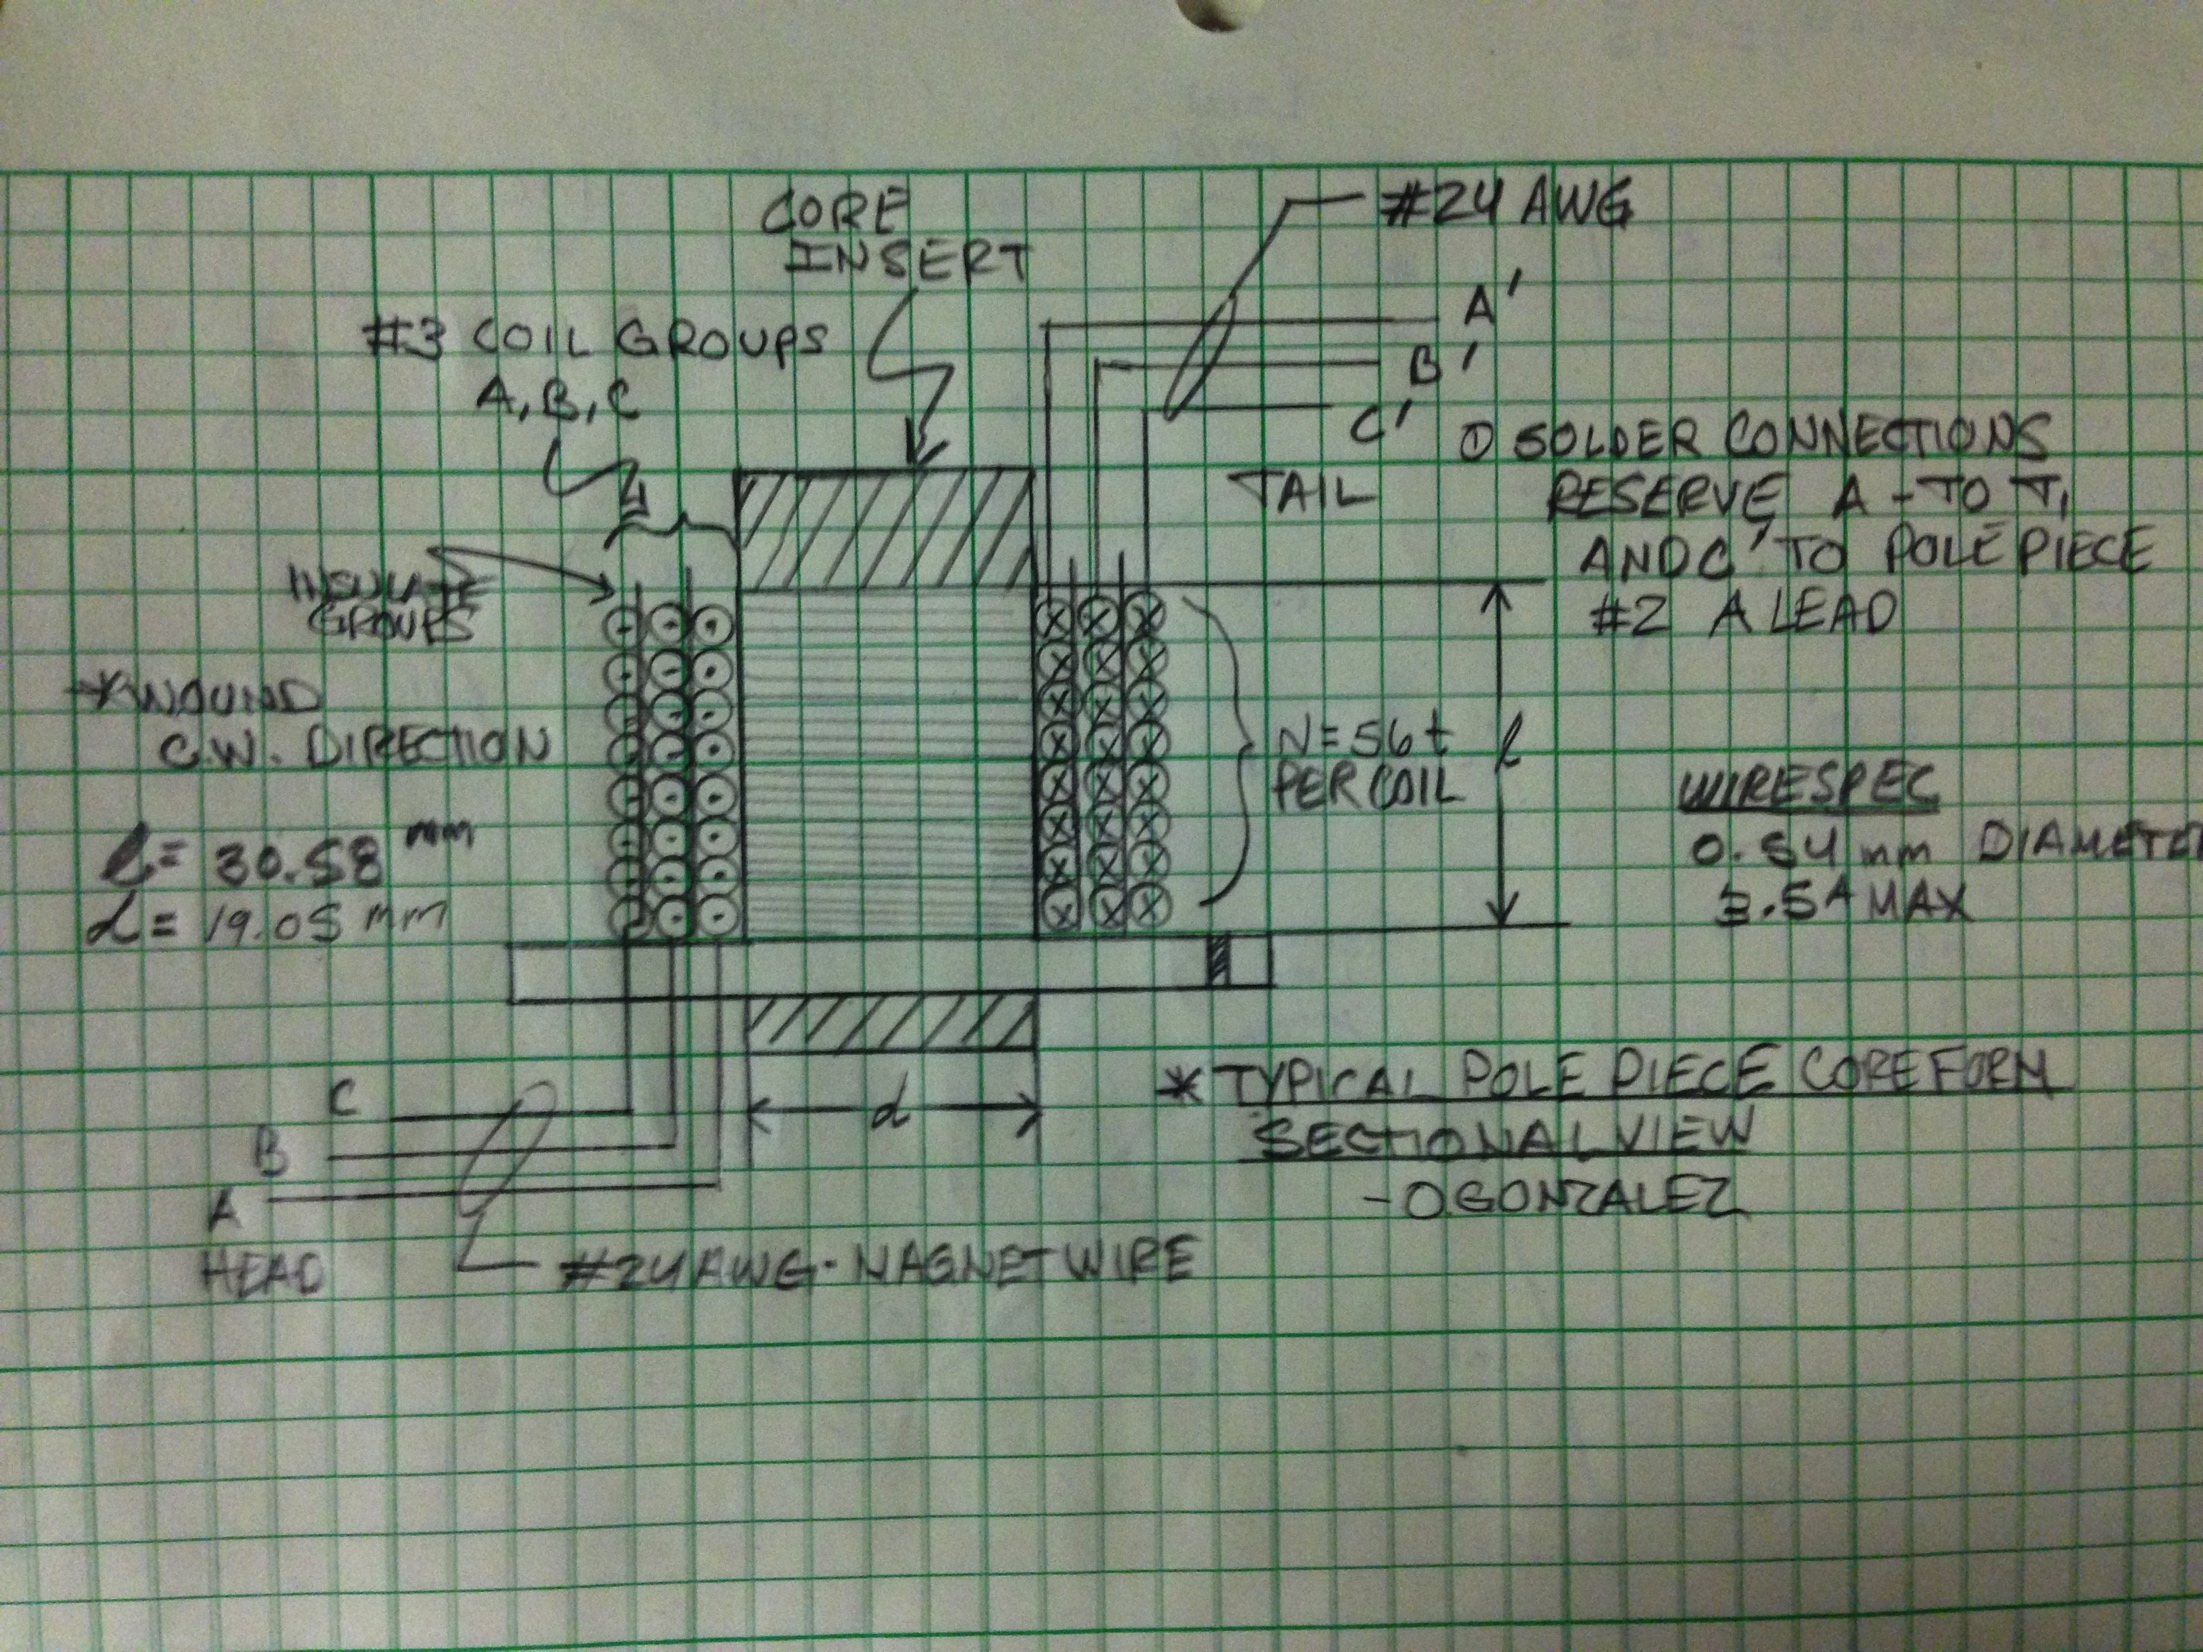 CORE
INSERT
#24 AWG
#3 COIL GROUPS
A, B, C
A'
B'
C'
TAIL
① SOLDER CONNECTIONS
RESERVE A - TO T1
AND C' TO POLE PIECE
#2 A LEAD
INSULATE
GROUPS
* WOUND
C.W. DIRECTION
l = 30.58 mm
d = 19.05 mm
N = 56 t
PER COIL
l
WIRE SPEC
0.54 mm DIAMETER
3.5A MAX
C
B
A
HEAD
d
#24 AWG - MAGNET WIRE
* TYPICAL POLE PIECE CORE FORM
SECTIONAL VIEW
- O GONZALEZ